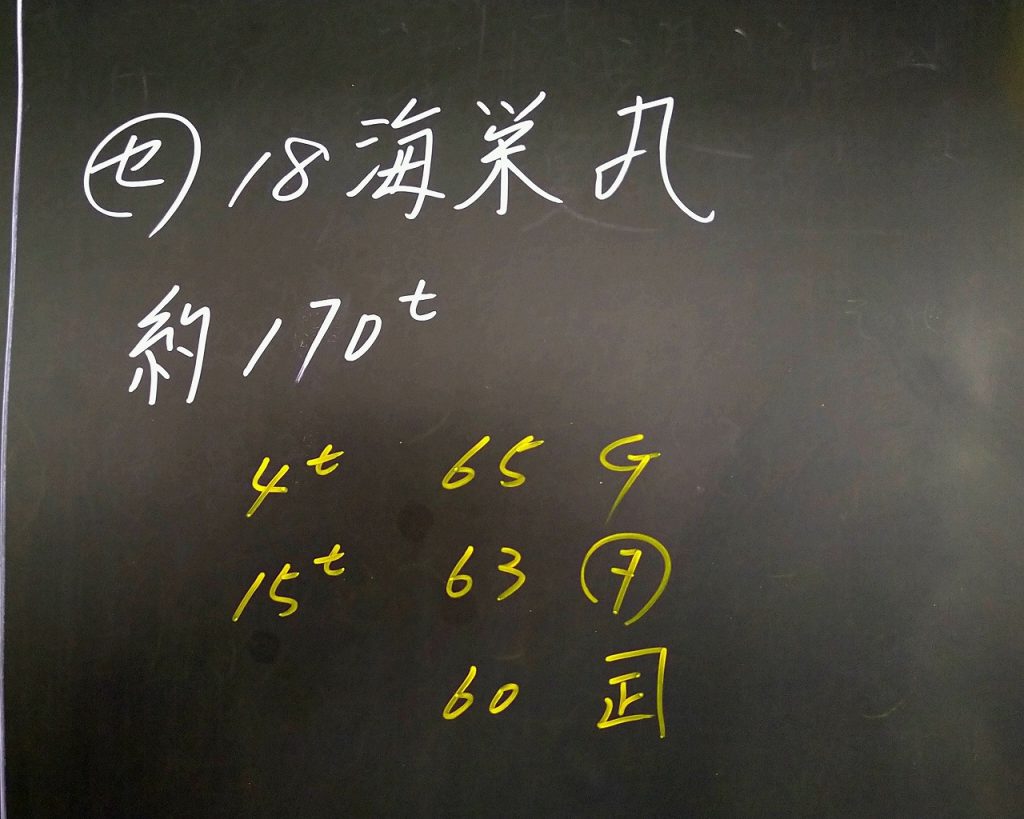 ㋝ 18 海栄丸
約 170t
4t 65 G
15t 63 ㋔
60 正